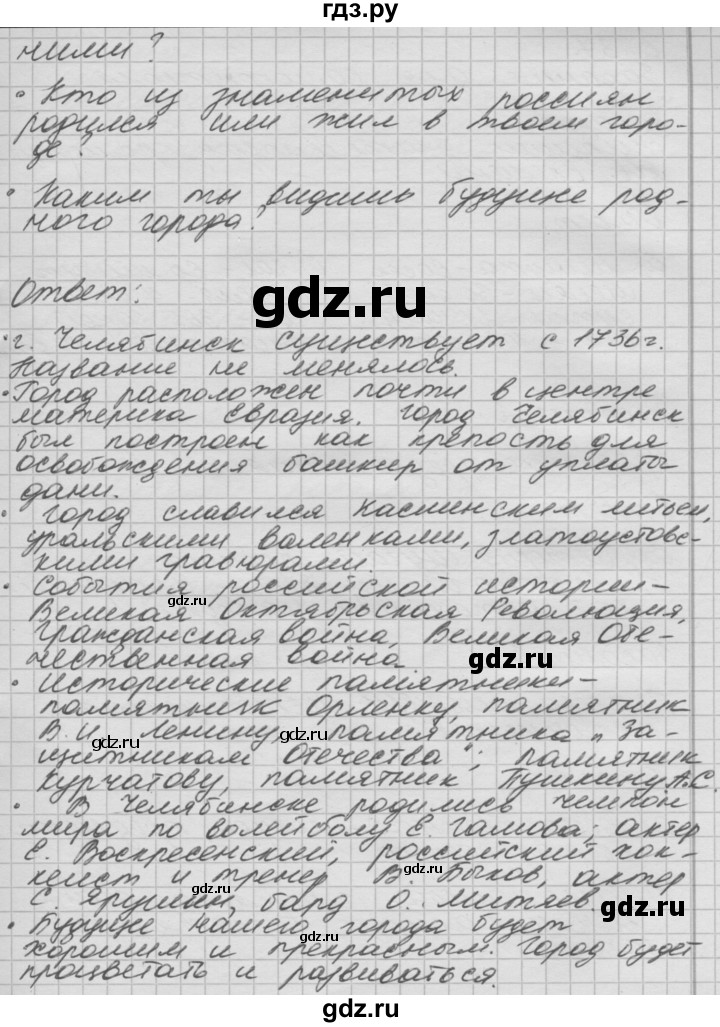 гдз.ру
ними?
• Кто из знаменитых россиян
родился или жил в твоем горо-
де?
• Каким ты видишь будущие род-
ного города?
gdz.ru
Ответ:
• г. Челябинск существует с 1736г.
Название не менялось.
• Город расположен почти в центре
материка Евразия. Город Челябинск
был построен как крепость для
освобождения башкир от уплаты
дани.
• Город славился Каслинским литьем,
уральскими валенками, златоустовс-
кими гравюрами.
• События российской истории-
gdz.ru
Великая Октябрьская Революция,
Гражданская война, Великая Оте-
чественная война
gdz.ru
• Исторические памятники-
памятник Орленку, памятник
В.И. Ленину, памятника „За-
gdz.ru
gdz.ru
щитникам Отечества"; памятник
Курчатову, памятник Пушкину А.С.
• В Челябинске родились чемпион
мира по волейболу Е. Гамова; актер
Е. Воскресенский, российский хок-
кеист и тренер В. Быков, актер
gdz.ru
С. Ярушин, бард О. Митяев
gdz.ru
• Будущие нашего города будет
хорошим и прекрасным. Город будет
gdz.ru
процветать и развиваться.
gdz.ru